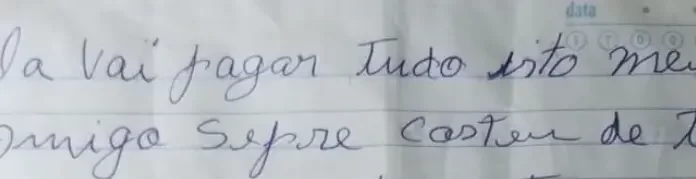 data
Da vai pagar Tudo isto meu
omigo Sepre costeu de